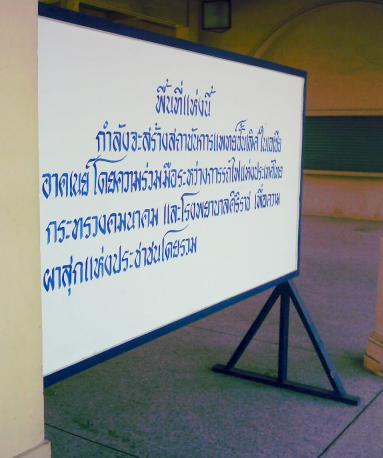 พื้นที่แห่งนี้
กำลังจะสร้างสถาบันการแพทย์ชั้นเลิศในเอเซีย
อาคเนย์โดยความร่วมมือระหว่างการรถไฟแห่งประเทศไทย
กระทรวงคมนาคม และโรงพยาบาลศิริราช เพื่อความ
ผาสุกแห่งประชาชนโดยรวม